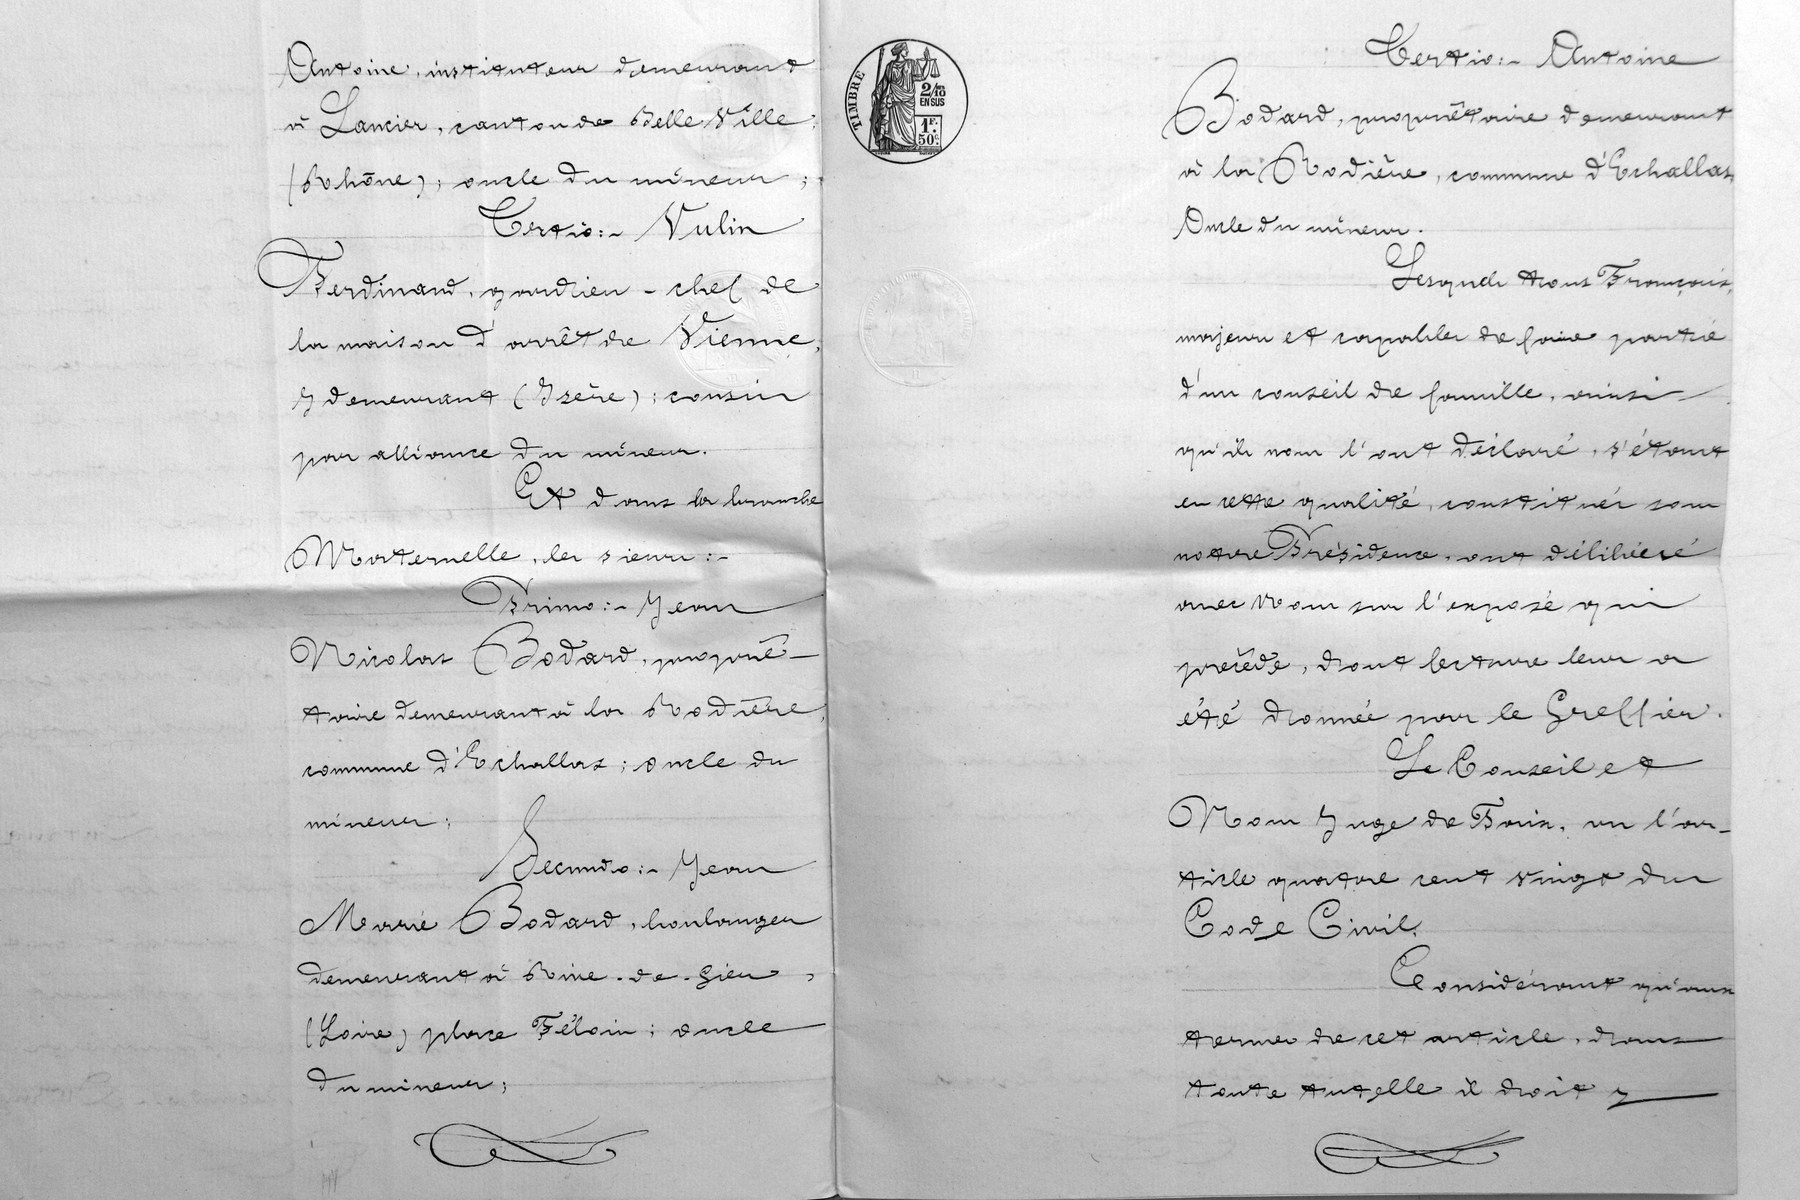 Antoine, instituteur demeurant
à Lancier, canton de Belle Ville
(Rhône); oncle du mineur;
Tertio:- Vulin
Ferdinand, gardien-chef de
la maison d'arrêt de Vienne,
y demeurant (Isère); cousin
par alliance du mineur.
Et dans la branche
Maternelle, les sieurs:-
Primo:- Jean
Nicolas Bodard, proprié-
taire demeurant à la Rodière,
commune d'Echallas; oncle du
mineur;
Secundo:- Jean
Marie Bodard, boulanger
demeurant à Rive-de-Gier,
(Loire) place Féloin; oncle
du mineur;
TIMBRE
2/10 EN SUS
1F. 50c.
Tertio:- Antoine
Bodard, propriétaire demeurant
à la Rodière, commune d'Echallas,
Oncle du mineur.
Lesquels tous Français,
majeurs et capables de faire partie
d'un conseil de famille, ainsi
qu'ils nous l'ont déclaré, s'étant
en cette qualité, constitués sous
notre Présidence, ont délibéré
avec Nous sur l'exposé qui
précède, dont lecture leur a
été donnée par le Greffier.
Le Conseil et
Nous Juge de Paix, vu l'ar-
ticle quatre cent vingt du
Code Civil,
Considérant qu'aux
termes de cet article, dans
toute tutelle il doit y